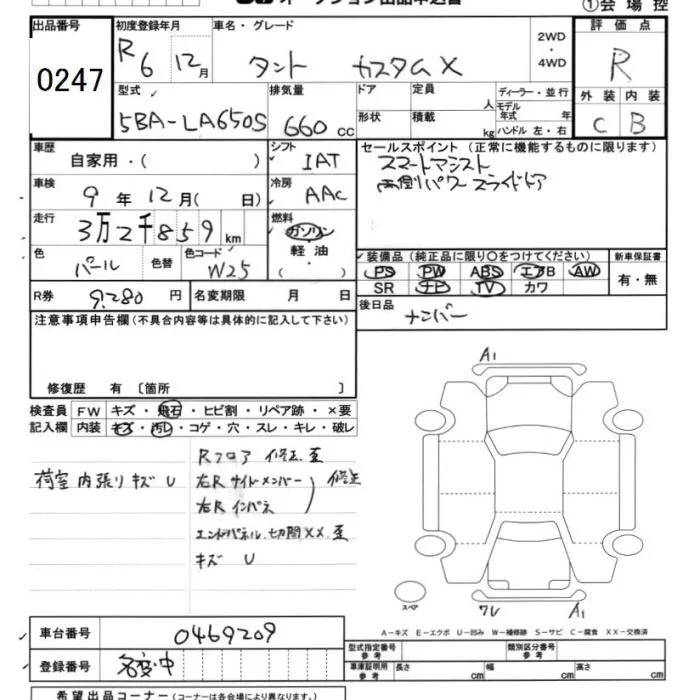 オークション出品申込書
①会場控
出品番号 初度登録年月 車名・グレード 2WD・4WD 評価点
0247 R6 12月 タント カスタムX R
型式 排気量 ドア 定員 人 ディーラー・並行 外装 内装
5BA-LA650S 660cc 形状 積載 kg モデル年式 年 ハンドル 左・右 C B
車歴 自家用・( ) シフト IAT セールスポイント (正常に機能するものに限ります)
車検 9年12月( 日) 冷房 AAC スマートアシスト
両側パワースライドドア
走行 3万2千859km 燃料 ガソリン・軽油・( )
色 パール 色替 色コード W25 装備品 (純正品に限り○をつけてください) 新車保証書
PS PW ABS エアB AW 有・無
SR ナビ TV カワ
R券 9,280円 名変期限 月 日 後日品 ナンバー
注意事項申告欄(不具合内容等は具体的に記入して下さい)
修復歴 有 〔箇所 〕
検査員 FW キズ・飛石・ヒビ割・リペア跡・×要
記入欄 内装 キズ・汚レ・コゲ・穴・スレ・キレ・破レ
Rフロア 修正歪
荷室内張りキズU 右Rサイドメンバー 修正
右Rインパネ
エンドパネル切開XX歪
キズ U
A1
スペア
ワレ A1
A-キズ E-エクボ U-凹み W-補修跡 S-サビ C-腐食 XX-交換済
車台番号 0469209
型式指定番号 参考 類別区分番号 参考
登録番号 名変中 車庫証明用 参考 長さ cm 幅 cm 高さ cm
希望出品コーナー(コーナーは各会場により異なります。)